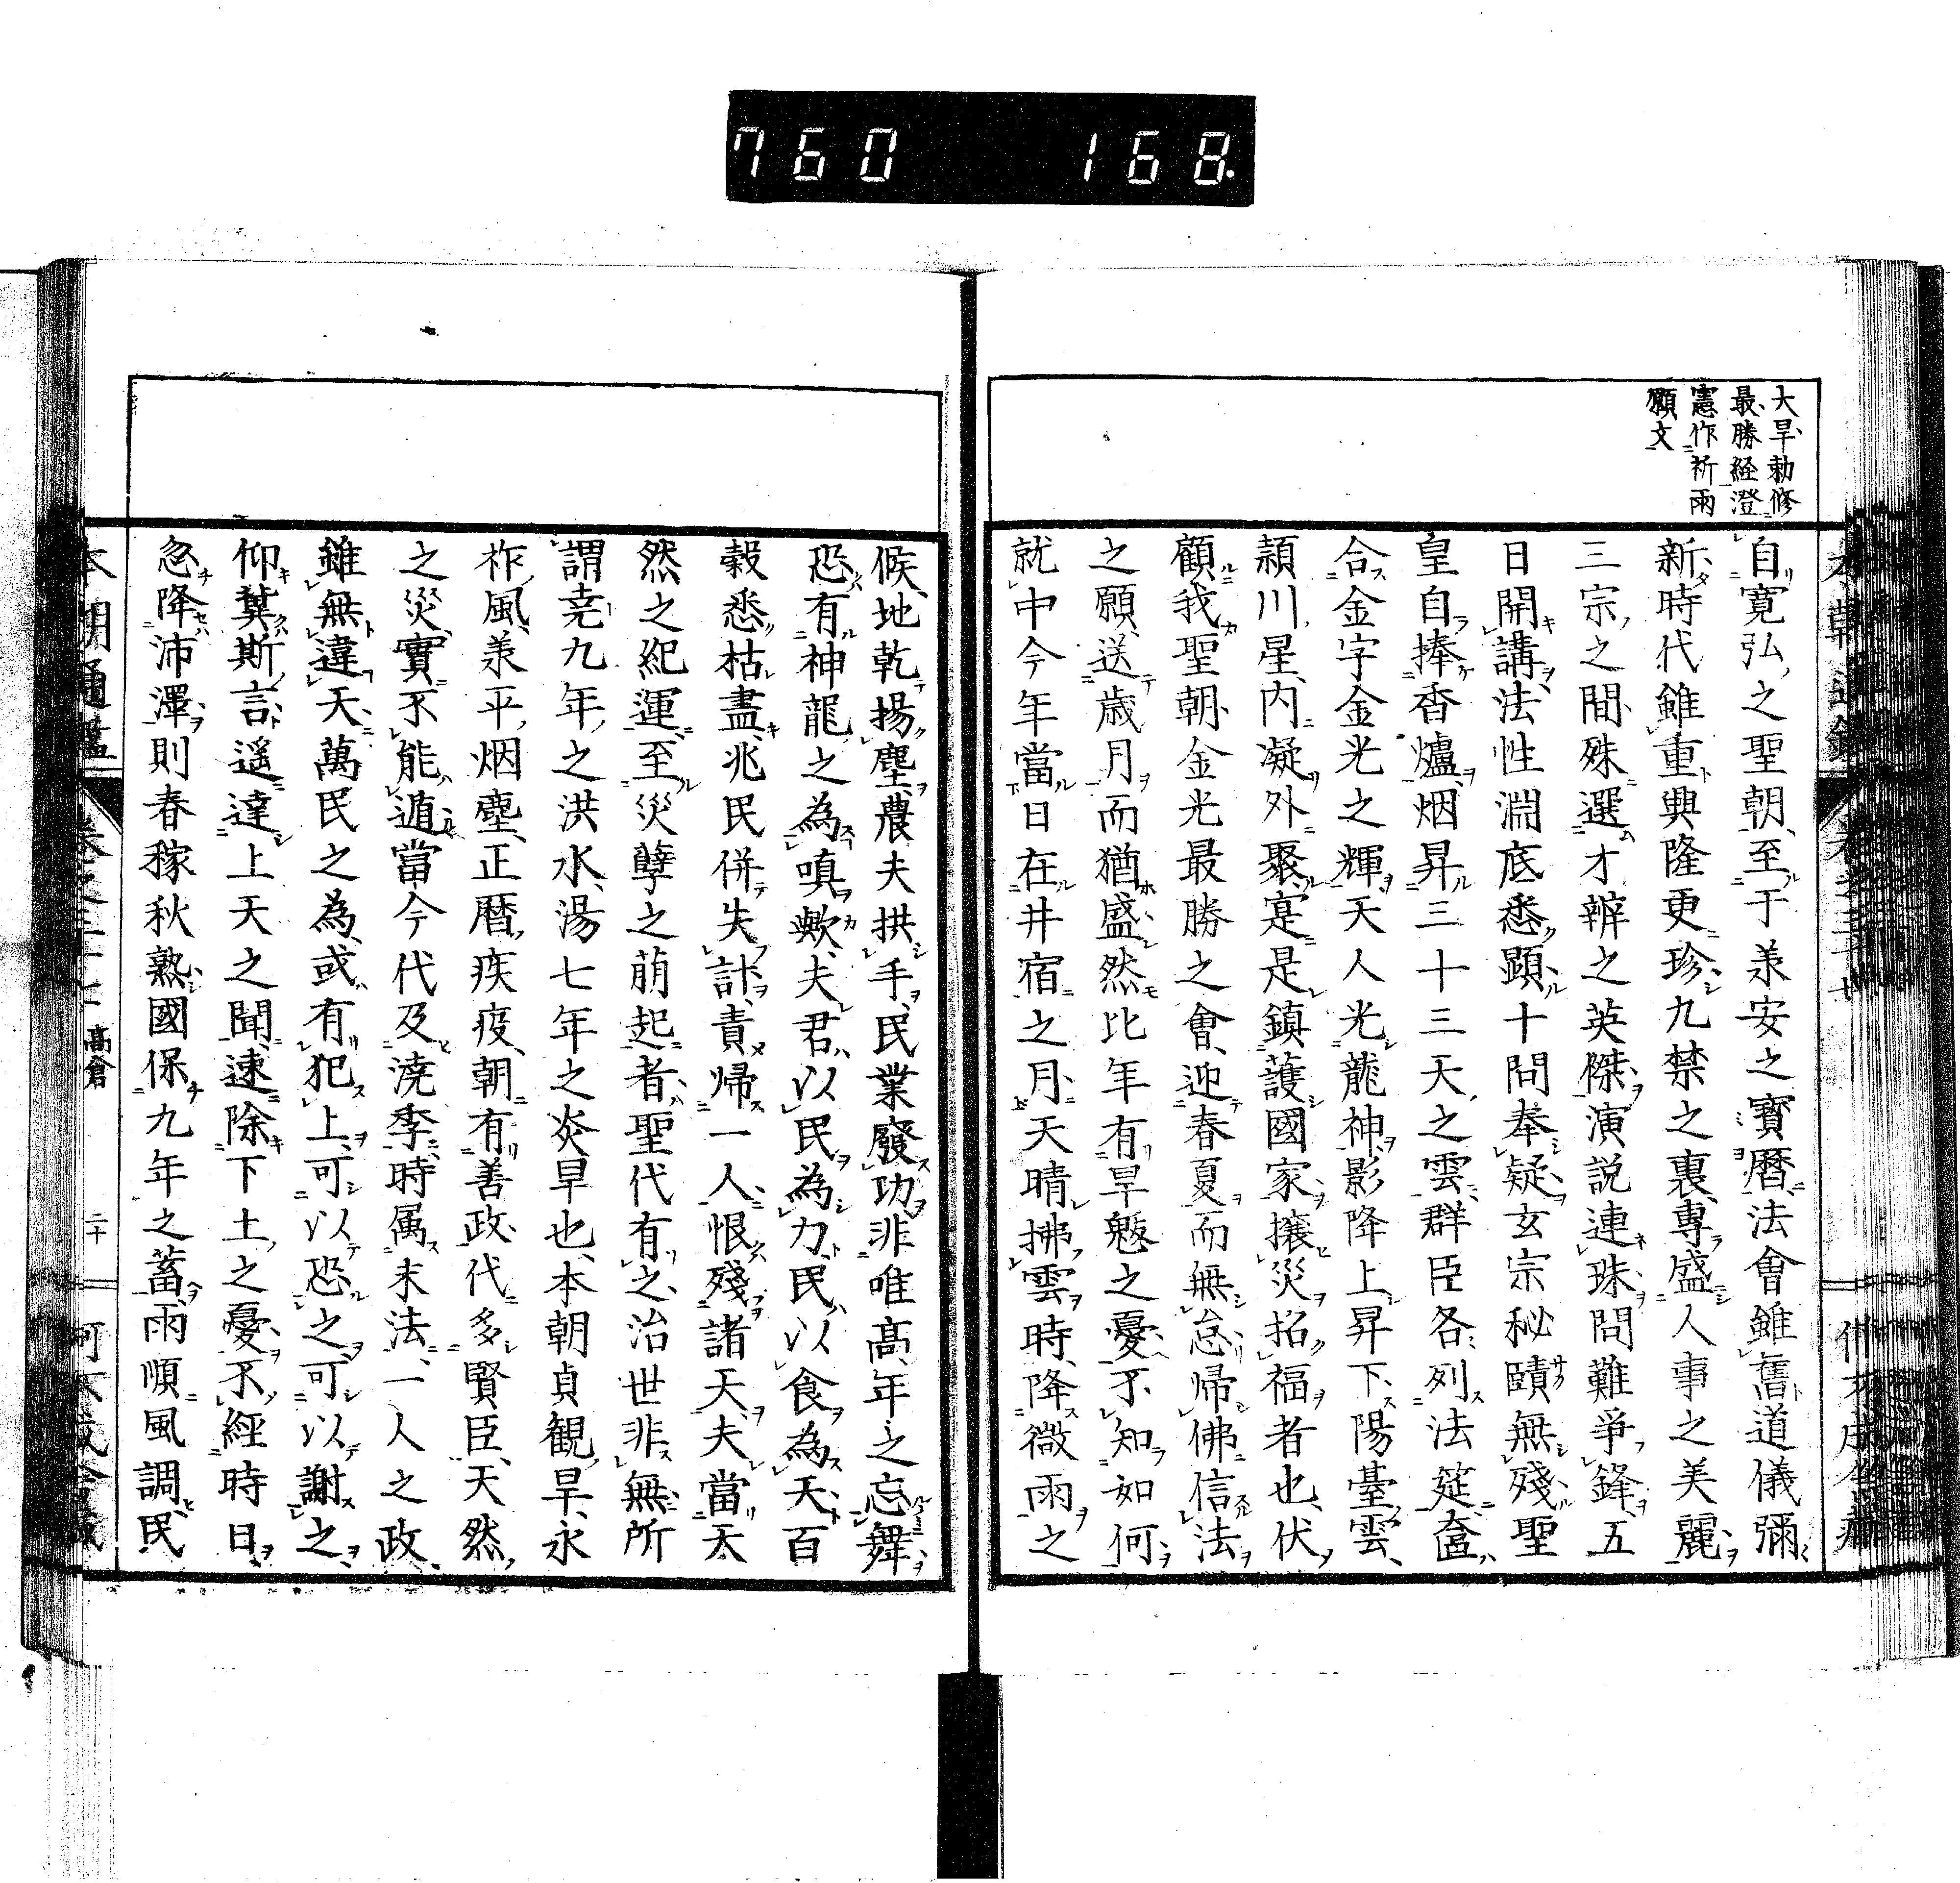 760 168
大旱勅修
最勝経澄
憲作祈雨
願文
自寛弘之聖朝至于羕安之寳暦法會雖舊道儀彌
新時代雖重興隆更珍九禁之裏專盛人事之美麗
三宗之間殊選才辨之英傑演説連珠問難爭鋒五
日開講法性淵底悉顕十問奉疑玄宗秘賾無殘聖
皇自捧香爐烟昇三十三天之雲群臣各列法筵
合金字金光之輝天人光龍神影降上昇下陽臺雲
潁川星内凝外聚寔是鎮護國家攘災招福者也伏
顧我聖朝金光最勝之會迎春夏而無怠帰佛信法
之願送歳月而猶盛然比年有旱魃之憂不知如何
就中今年當日在井宿之月天晴拂雲時降微雨之
候地乾揚塵農夫拱手民業廢功非唯高年之忘舞
恐有神龍之為嗔歟夫君以民為力民以食為天百
穀悉枯盡兆民併失計責帰一人恨殘諸天夫當太
然之紀運至災孽之萠起者聖代有之治世非無所
謂尭九年之洪水湯七年之炎旱也本朝貞観旱永
祚風羕平烟塵正暦疾疫朝有善政代多賢臣天然
之災實不能遁當今代及澆季時属末法一人之政
雖無違天萬民之為或有犯上可以恐之可以謝之
仰冀斯言遥達上天之聞速除下土之憂不經時日
忽降沛澤則春稼秋熟國保九年之蓄雨順風調民
本朝通鑑
高倉
二十